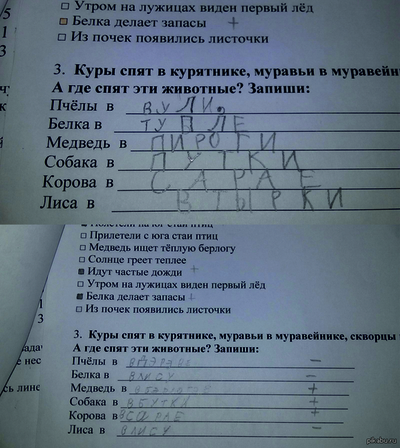 □ Утром на лужицах виден первый лёд
□ Белка делает запасы +
□ Из почек появились листочки
3. Куры спят в курятнике, муравьи в муравейни
А где спят эти животные? Запиши:
Пчёлы в ВУЛИ,
Белка в ТУПЛЕ
Медведь в ПИРОГИ
Собака в ПУТКИ
Корова в САРАЕ
Лиса в ВТЫРКИ
□ Прилетели с юга стаи птиц
□ Медведь ищет тёплую берлогу
□ Солнце греет теплее
■ Идут частые дожди +
□ Утром на лужицах виден первый лёд
■ Белка делает запасы +
□ Из почек появились листочки
3. Куры спят в курятнике, муравьи в муравейнике, скворцы
А где спят эти животные? Запиши:
Пчёлы в –
Белка в ВЛИСУ –
Медведь в +
Собака в ВБУТКИ +
Корова в САРАЕ +
Лиса в ВЛИСУ –
pikabu.ru